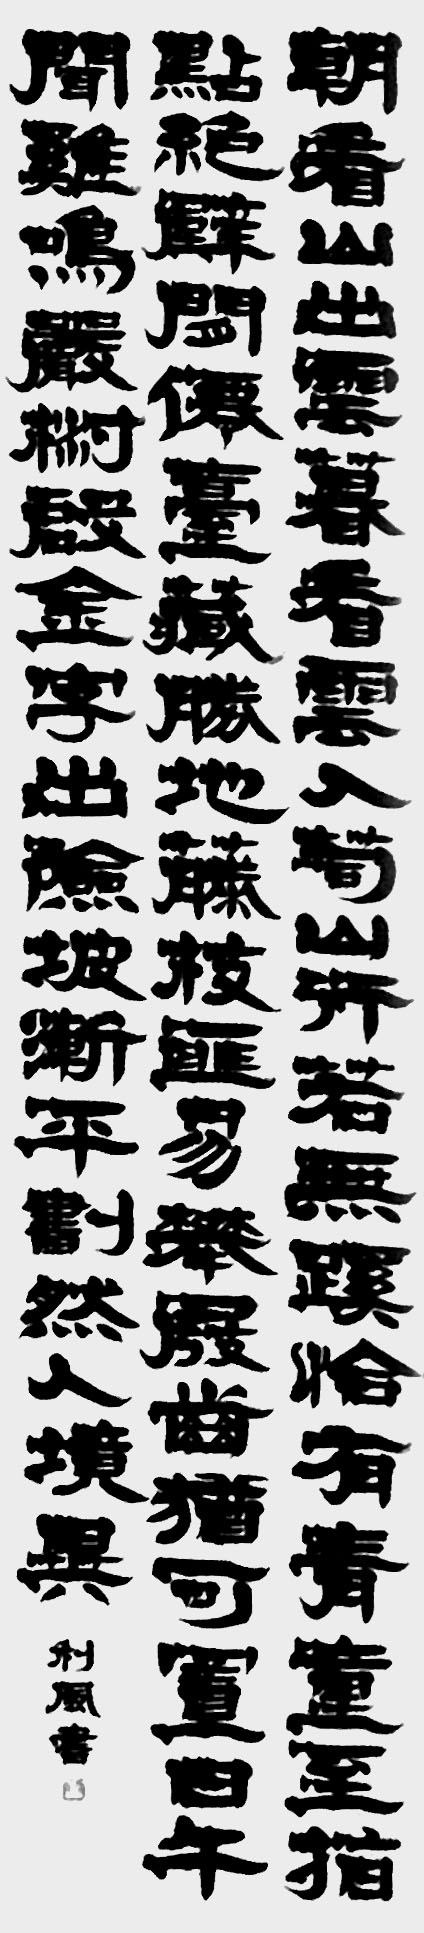 朝看山出雲暮看雲入山行若無蹊恰有青童至指
點絕間僊臺藏勝地藤枝匪易攀屐齒猶可置日午
聞雞鳴巖樹啟金字出險坡漸平劃然人境異
利風書